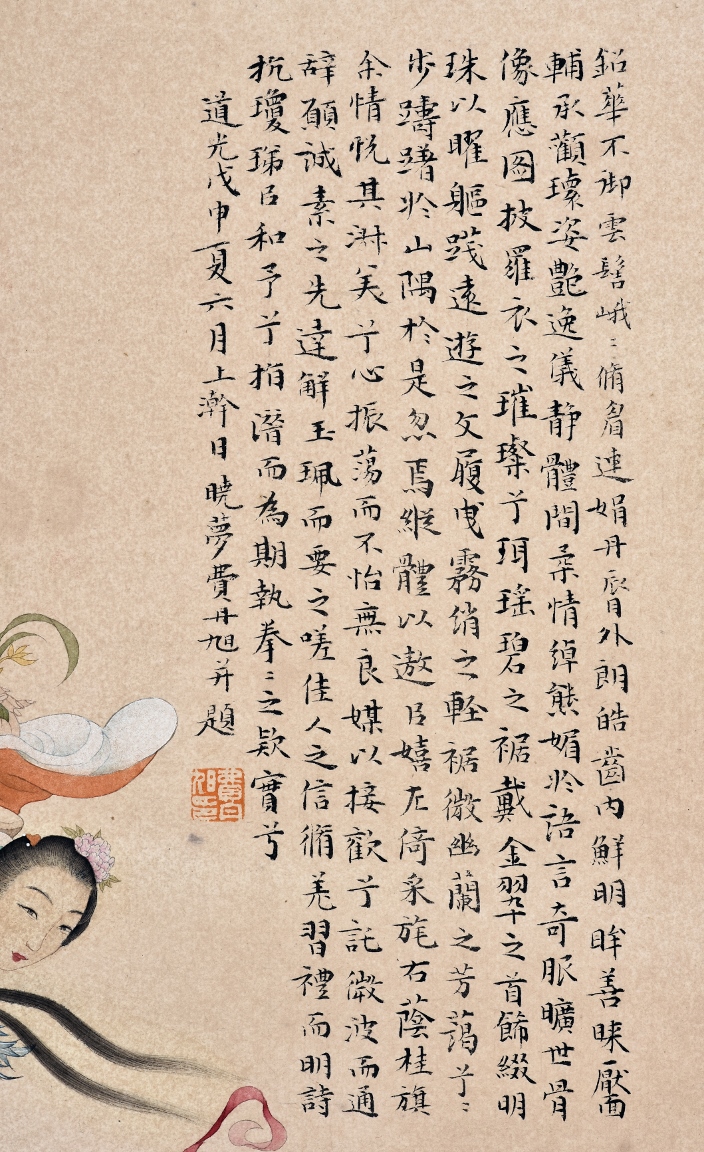 鉛華不御雲髻峨〻脩眉連娟丹脣外朗皓齒內鮮明眸善睞靨
輔承顴瓌姿艷逸儀靜體閒柔情綽態媚於語言奇服曠世骨
像應圖披羅衣之璀璨兮珥瑤碧之裾戴金翠之首飾綴明
珠以曜軀踐遠遊之文履曳霧綃之輕裾微幽蘭之芳藹兮〻
步躊躇於山隅於是忽焉縱體以遨目嬉左倚采旄右蔭桂旗
余情悅其淋美兮心振蕩而不怡無良媒以接歡兮託微波而通
辭願誠素之先達解玉珮而要之嗟佳人之信脩羌習禮而明詩
抗瓊珶目和予兮指潛而為期執拳〻之欵實兮
道光戊申夏六月上澣日曉夢費丹旭并題